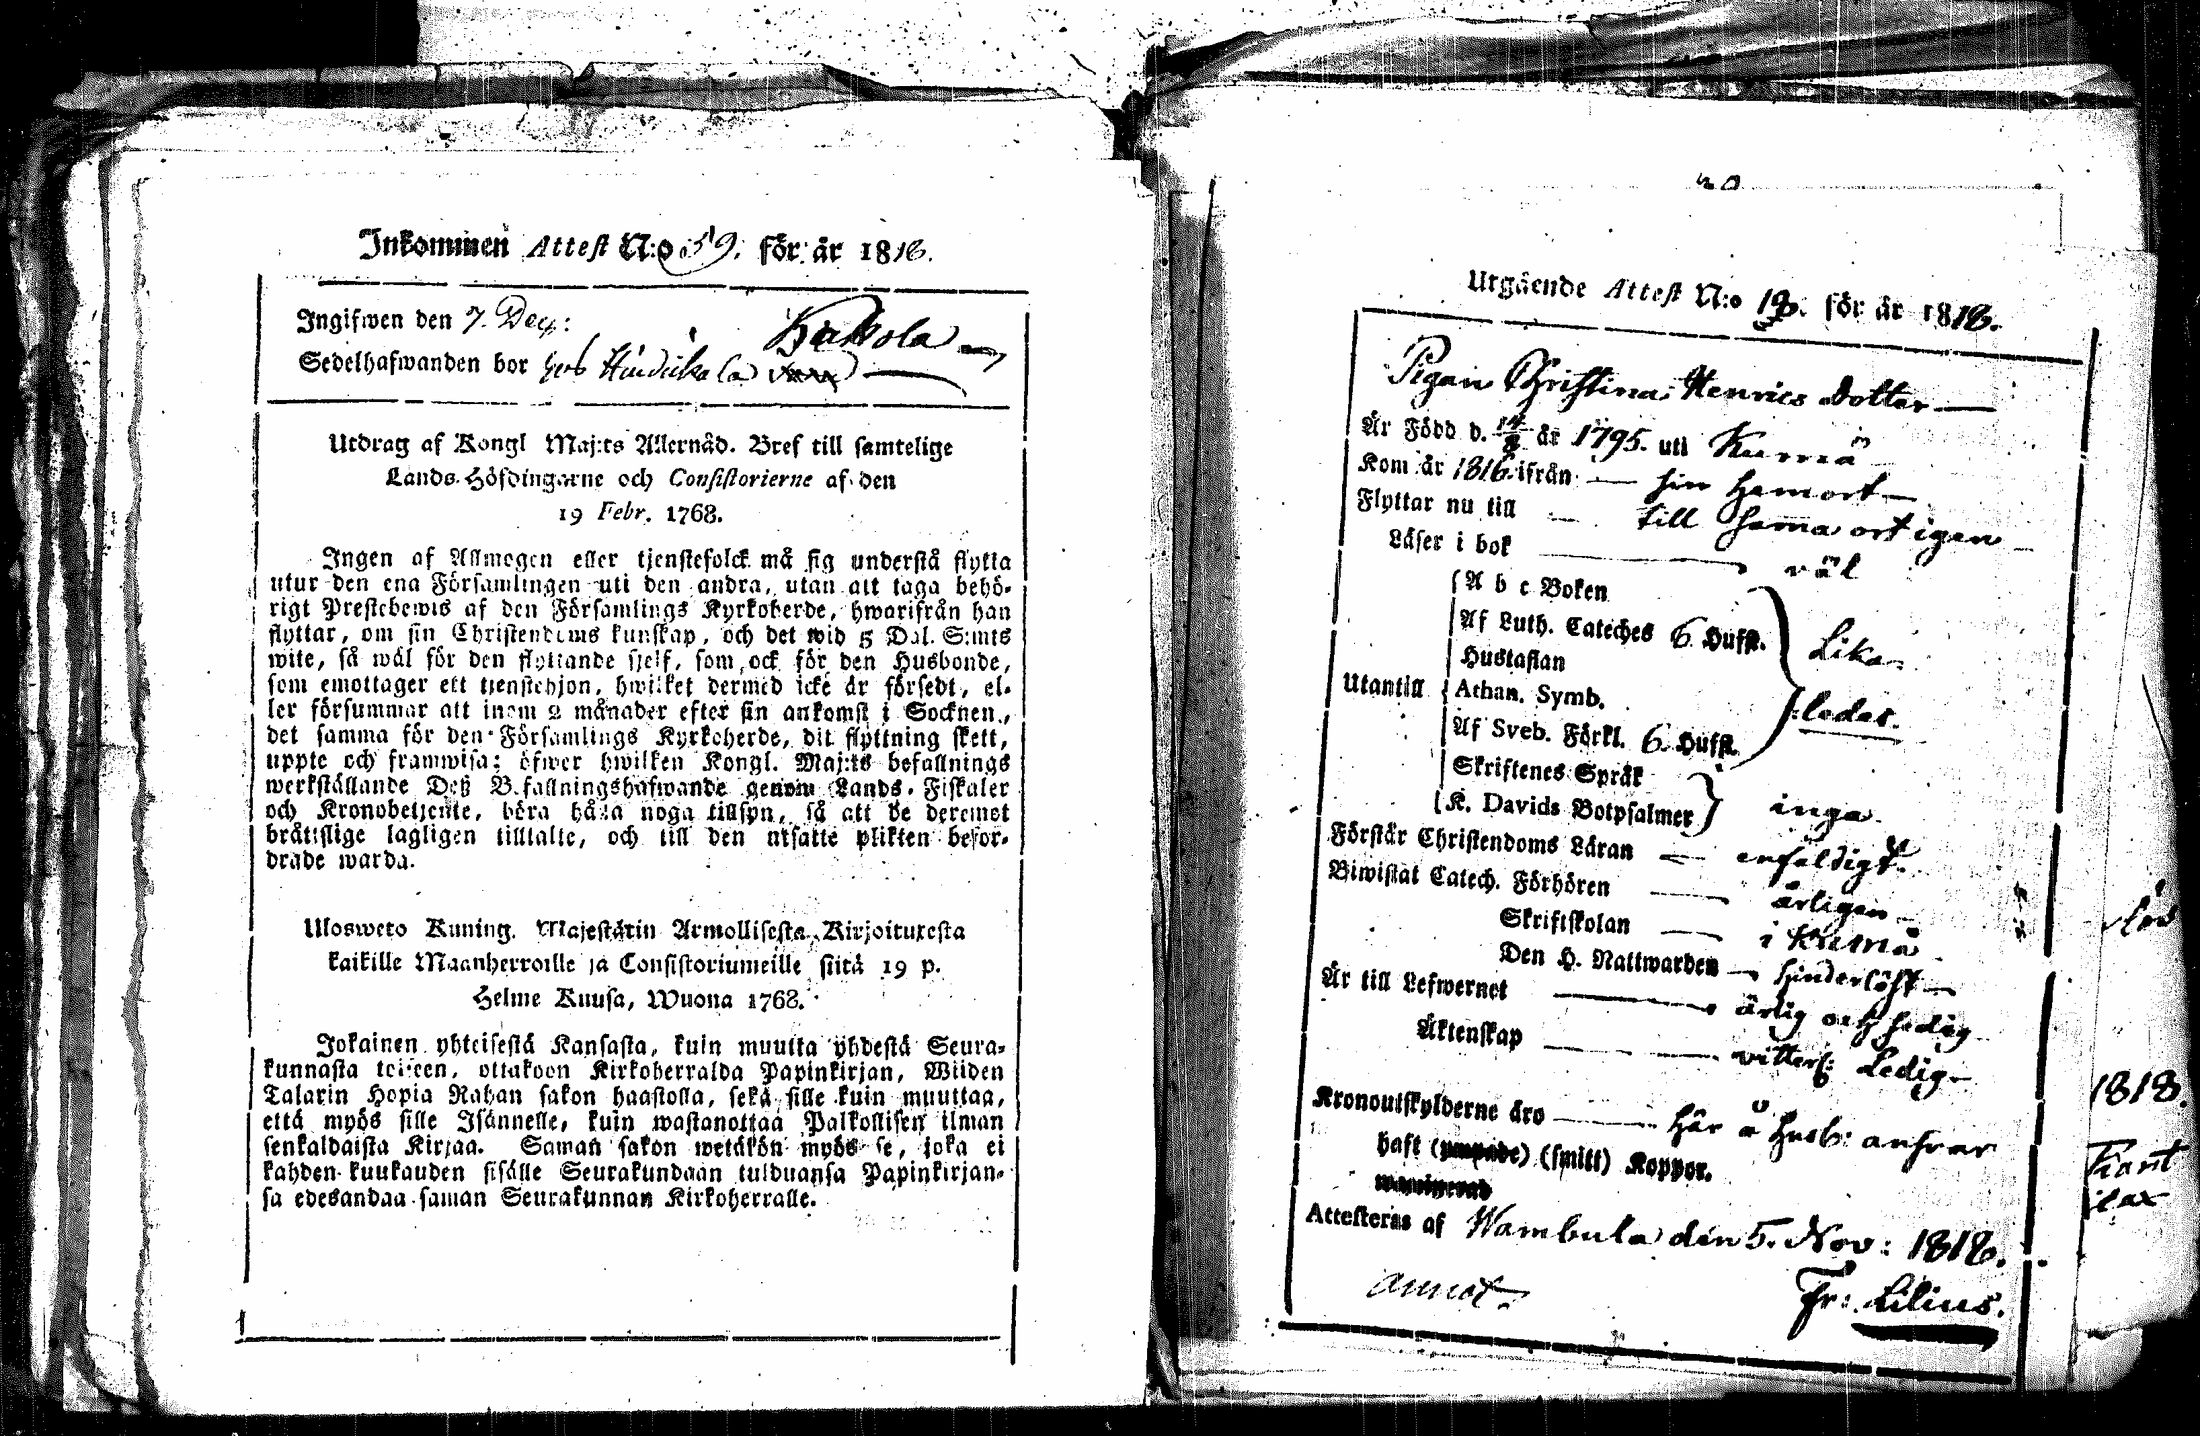 Inkommen Attest N:o 59. för år 1818.
Ingifwen den 7. Dec:
Sedelhafwanden bor hos Hindickala Hakola
Utdrag af Kongl Maj:ts Allernåd. Bref till samtelige
Lands-Höfdingarne och Consistorierne af den
19 Febr. 1768.
Ingen af Allmogen eller tjenstefolck må sig understå flytta
utur den ena Församlingen uti den andra, utan att taga behö-
rigt Prestebewis af den Församlings Kyrkoherde, hwarifrån han
flyttar, om sin Christendoms kunskap, och det wid 5 Dal. S:mts
wite, så wäl för den flyttande sjelf, som ock för den Husbonde,
som emottager ett tjenstehjon, hwilket dermed icke är försedt, el-
ler försummar att inom 2 månader efter sin ankomst i Socknen,
det samma för den Församlings Kyrkoherde, dit flyttning skett,
uppte och framwisa; öfwer hwilken Kongl. Maj:ts befallnings
werkställande Deß Befallningshafwande genom Lands-Fiskaler
och Kronobetjente, böra hålla noga tillsyn, så att de deremot
bråttslige lagligen tilltalte, och till den utsatte plikten befor-
drade warda.
Ulosweto Kuning. Majestätin Armollisesta Kirjoituxesta
kaikille Maanherroille ja Consistoriumeille siitä 19 p.
Helme Kuusa, Wuona 1768.
Jokainen yhteisestä Kansasta, kuin muutta yhdestä Seura-
kunnasta toiseen, ottakoon Kirkoherralda Papinkirjan, Wiiden
Talarin Hopia Rahan sakon haastolla, sekä sille kuin muuttaa,
että myös sille Isännelle, kuin wastanottaa Palkollisen ilman
senkaldaista Kirjaa. Saman sakon wetäkön myös se, joka ei
kahden kuukauden sisälle Seurakundaan tulduansa Papinkirjan-
sa edesandaa saman Seurakunnan Kirkoherralle.
Utgående Attest N:o 18. för år 1818.
Pigan Christina Henrics Dotter
Är Född d. 14/8 år 1795. uti Kumä
Kom år 1816. ifrån sin hemort
Flyttar nu till till samma ort igen
Läser i bok väl
Utantill
A b c Boken
Af Luth. Cateches 6 Hufst.
Hustaflan
Athan. Symb.
Af Sveb. Förkl. 6. Hufst.
Lika-
ledes.
Skriftenes Språk
K. Davids Botpsalmer inga
Förstår Christendoms Läran enfaldigt.
Biwistat Catech. Förhören årligen
Skriftskolan i Kumä
Den H. Nattwarden hinderlöst
Är till Lefwernet ärlig och sedig
Äktenskap Ledig
Kronoutskylderne äro här å husb: ansvar
haft (smitt) Koppor.
Attesteras af Wambula den 5. Nov: 1818.
annot. Fr: Lilius.
1818.